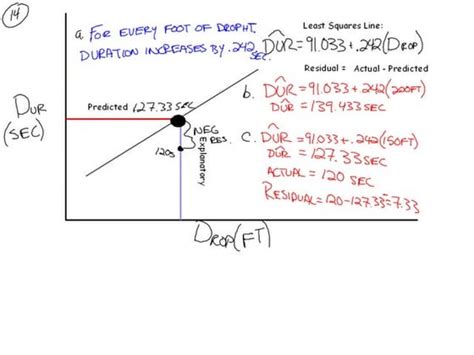 14
a. FOR EVERY FOOT OF DROP HT,
DURATION INCREASES BY .242 SEC.
Least Squares Line:
DUR = 91.033 + .242(DROP)
Residual = Actual - Predicted
b. DUR = 91.033 + .242(200FT)
DUR = 139.433 SEC
C. DUR = 91.033 + .242(150FT)
DUR = 127.33 SEC
ACTUAL = 120 SEC
RESIDUAL = 120 - 127.33 = -7.33
DUR
(SEC)
Predicted 127.33 SEC
NEG
RES.
120s
Explanatory
DROP (FT)